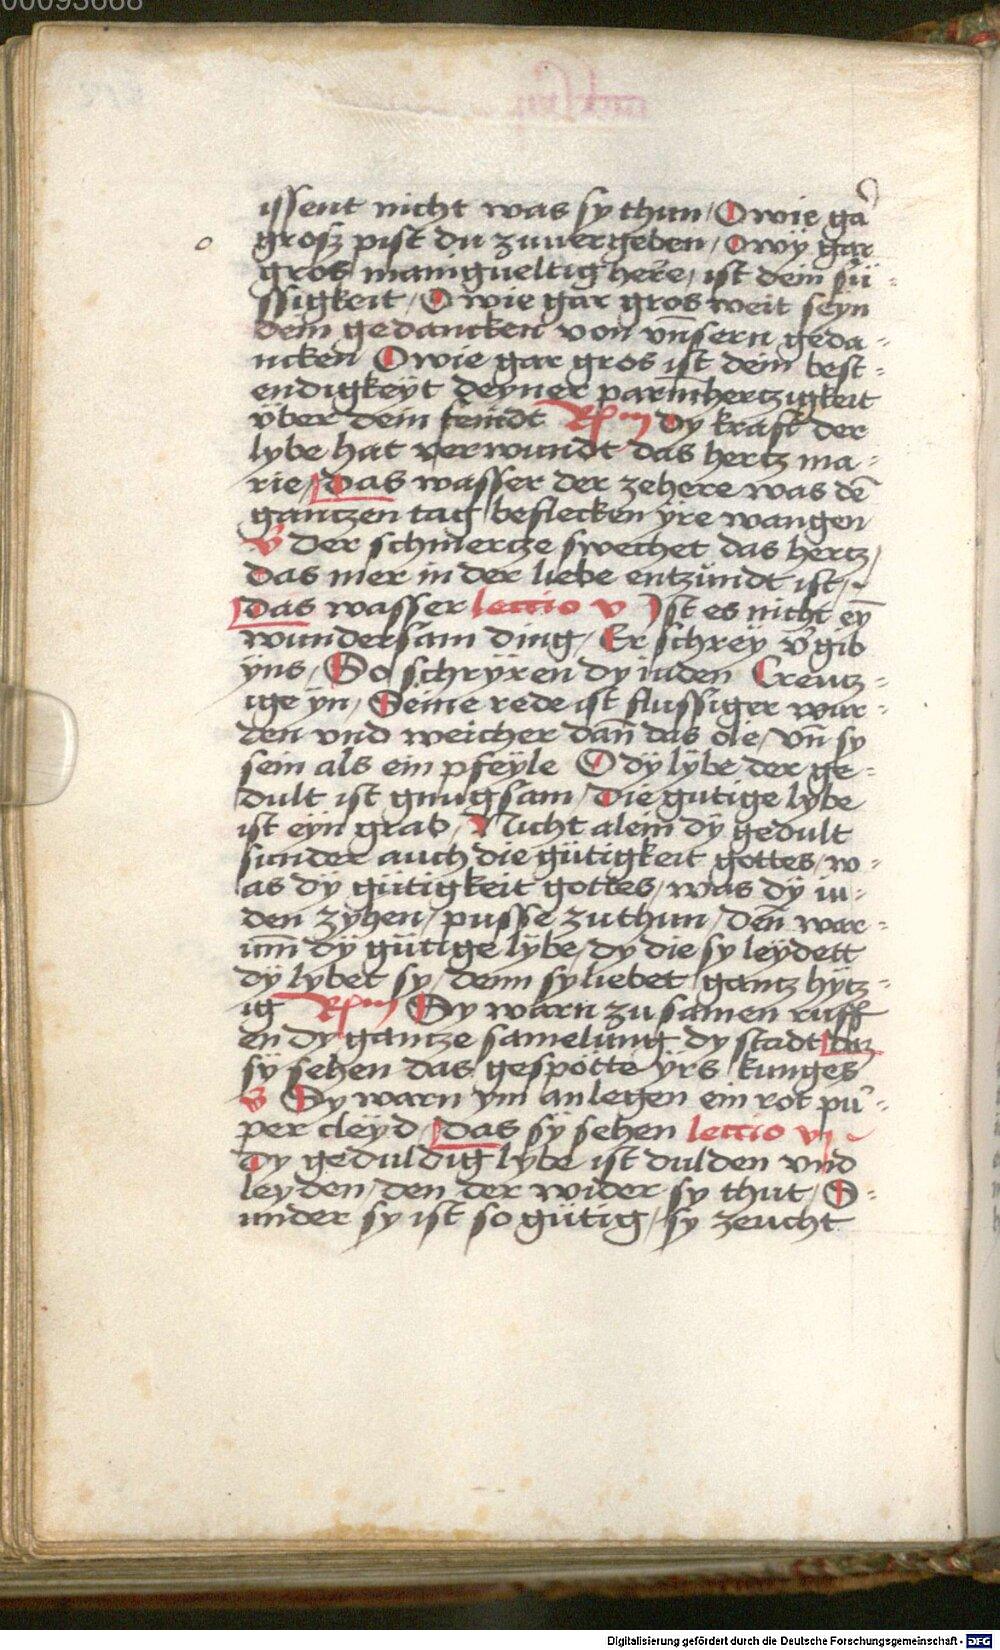 00093668
issent nicht was sy thun / O wie gar̃
grosz pist du zuuergeben / Owÿ gar
gros manigueltig here / ist dein sü-
ssigkeit / O wie gar gros weit seyn
dein gedancken von vñsern geda-
ncken O wie gar gros ist dein best-
endigkeÿt deyner parm̃hertzigkeit
vber dein feindt Rm̃ Dy kraft der
lybe hat verwundt das hertz ma-
rie / Das wasser der zehere was dē
gantzen tag beflecken ÿre wangen
V̊ Der schmertze swechet das hertz /
Das mer in der liebe entzůndt ist /
Das wasser lectio v Ist es nicht eȳ
wundersam ding / Er schreÿ v̊gib
ÿns / So schryren dy iuden Creutz-
ige ÿn / Seine rede ist flussiger wur-
den vnd weicher dan̄ das ole / vn̄ sy
sein als ein pfeyle O dÿ lÿbe der ge-
dult ist gnugsam / Die gutige lybe
ist eÿn grab / Nicht alein dÿ gedult
sunder auch die gütigkeit gottes / w-
as dÿ gütigkeit gottes / was dÿ iu-
den zyhen / pusse zuthun / den̄ war-
um̄ dÿ gütige lÿbe / dy die sy leydett
dÿ lybet sy / denn sy liebet gantz hÿtz-
ig Rm̃ Sy warn zu samen ruff
en dy gantze samelung dy stadt das
sÿ sehen das gespötte ÿrs kunges
V̊ Sy warn ym anlegen ein rot pu᷑-
per cleyd / Das sÿ sehen lectio vj
Dy geduldig lybe ist dulden vnd
leyden / den der wider sy thut / S-
under sy ist so gütig / sy zeucht
Digitalisierung gefördert durch die Deutsche Forschungsgemeinschaft - DFG